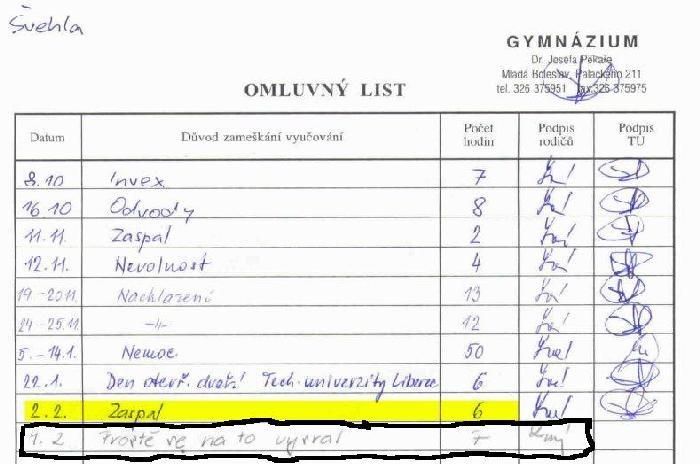 Švehla
GYMNÁZIUM
Dr. Josefa Pekaře
Mladá Boleslav, Palackého 211
tel. 326 375951 fax 326 375975
OMLUVNÝ LIST
Datum Důvod zameškání vyučování Počet hodin Podpis rodičů Podpis TU
8.10 Invex 7
16.10 Odvody 8
11.11. Zaspal 2
12.11. Nevolnost 4
19.-20.11. Nachlazení 13
24-25.11. -11- 12
5.-14.1. Nemoc 50
22.1. Den otevř. dveří Tech. univerzity Liberec 6
2.2. Zaspal 6
1.2 Prostě se na to vysral 7